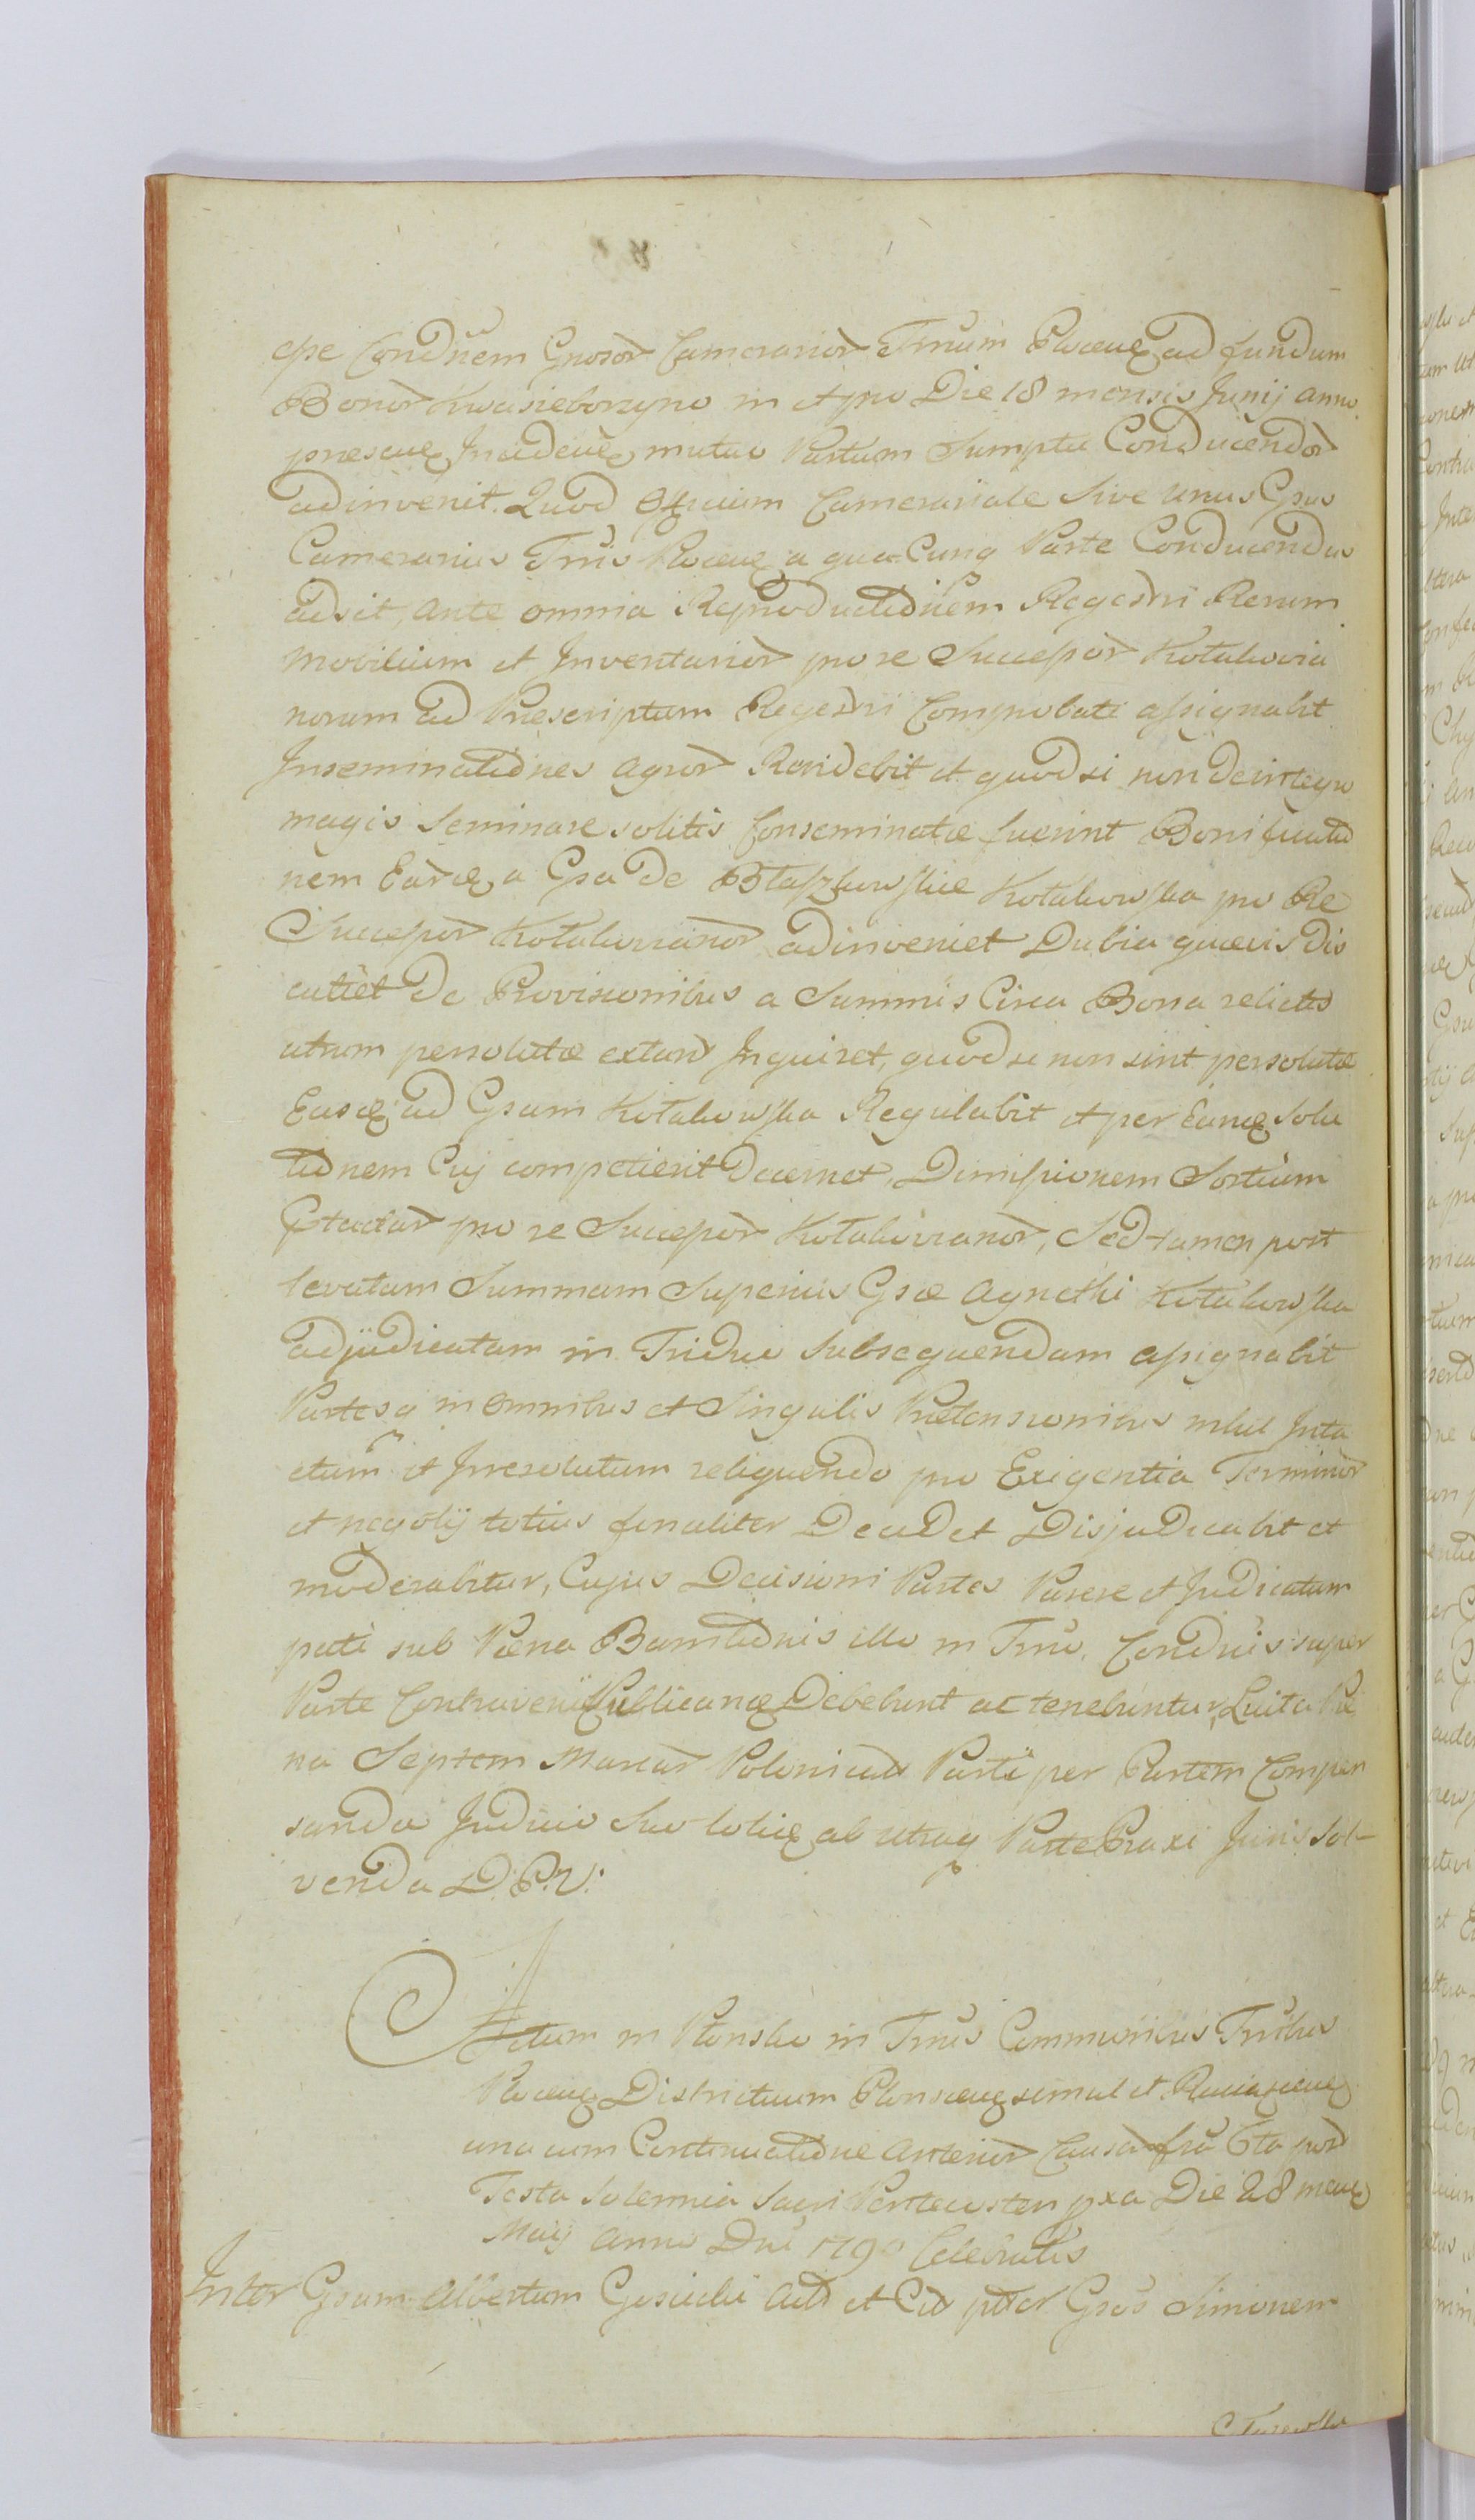 esse Conduñem Gnosor Camerarior Trñum Plocen̄ ad fundum
Bonor Kwasieborzyno in et pro Die 18 mensis Junij anno
præsen̄ Inciden̄ mutuo Partium Sumptu Conducendor
adinvenit. Quod Officium Camerariale Sive unus Gsus
Camerarius Trris Plocen̄ a qua Cunq Parte Conducendus
adsit, ante omnia Reproductionem Regestri Rerum
Mobilium et Inventarior pro re Successor Kołakovia
norum ad Præscriptum Regestri Comprobati assignabit
Inseminationes agror Revidebit et quod si non deintegro
magis Seminare solitis Conseminatæ fuerint Bonificatio
nem Earoe a Gsa de Błaszkowskie Kołakowska pro Re
Successor Kołakovianor adinveniet Dubia quævis Dis
cutiet De Provisionibus a Summis Circa Bona relictis
utrum persolutæ extant Inquiret, quod si non sint persolutæ
Easoe ad Gsam Kołakowska Regulabit et per Eanoe Solu
tionem Cuj competierit Decernet, Dimissionem Sortium
pro re Successor Kołakovianor, Sed tamen post
levatam Summam Superius Gsæ Agnethi Kołakowska
adjudicatam in Triduo Subsequendam assignabit
Partesq in omnibus et Singulis Prætensionibus nihil Inta
ctum et Irresolutum reliquendo pro Exigentia Terminor
et negotij totius finaliter Decidet Disjudicabit et
moderabitur, Cujus Decisioni Partes Parere et Judicatum
pati sub Pæna Bannitionis illo in Trno, Conduis super
Parte Contraven̄ Publicanoe Debebunt ac tenebuntur, Luita Pæ
na Septem Marcar Polonical Parti per Partem Compen
sanda Judicio Suo totioe ab utraq Parte Praxi Juris Sol-
venda D. P. V:
Actum in Płonsko in Trnis Communibus Trribus
Plocen̄ Districtuum Płonscen̄ simul et Raciązcen̄
una cum Continuatione anterior Causar fria 6ta post
Festa Solennia Sacri Pentecosten pxa Die 28 men̄
Maij Anno Dni 1790 Celebratis
Inter Gsum Albertum Gosicki Act et Cit ptter Gsos Simonem